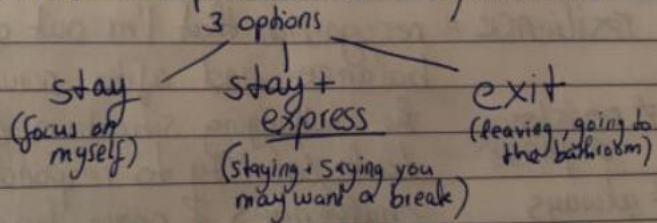 3 options
stay
(focus on
myself)
stay +
express
(staying + saying you
may want a break)
exit
(leaving, going to
the bathroom)